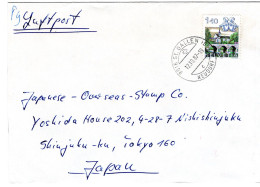 Luftpost
140
ST. GALLEN
HELVETIA
Japanese-Overseas-Stamp Co.
Yoshida House 202, 4-28-7 Nishishinjuku
Shinjuku-ku, Tokyo 160
Japan